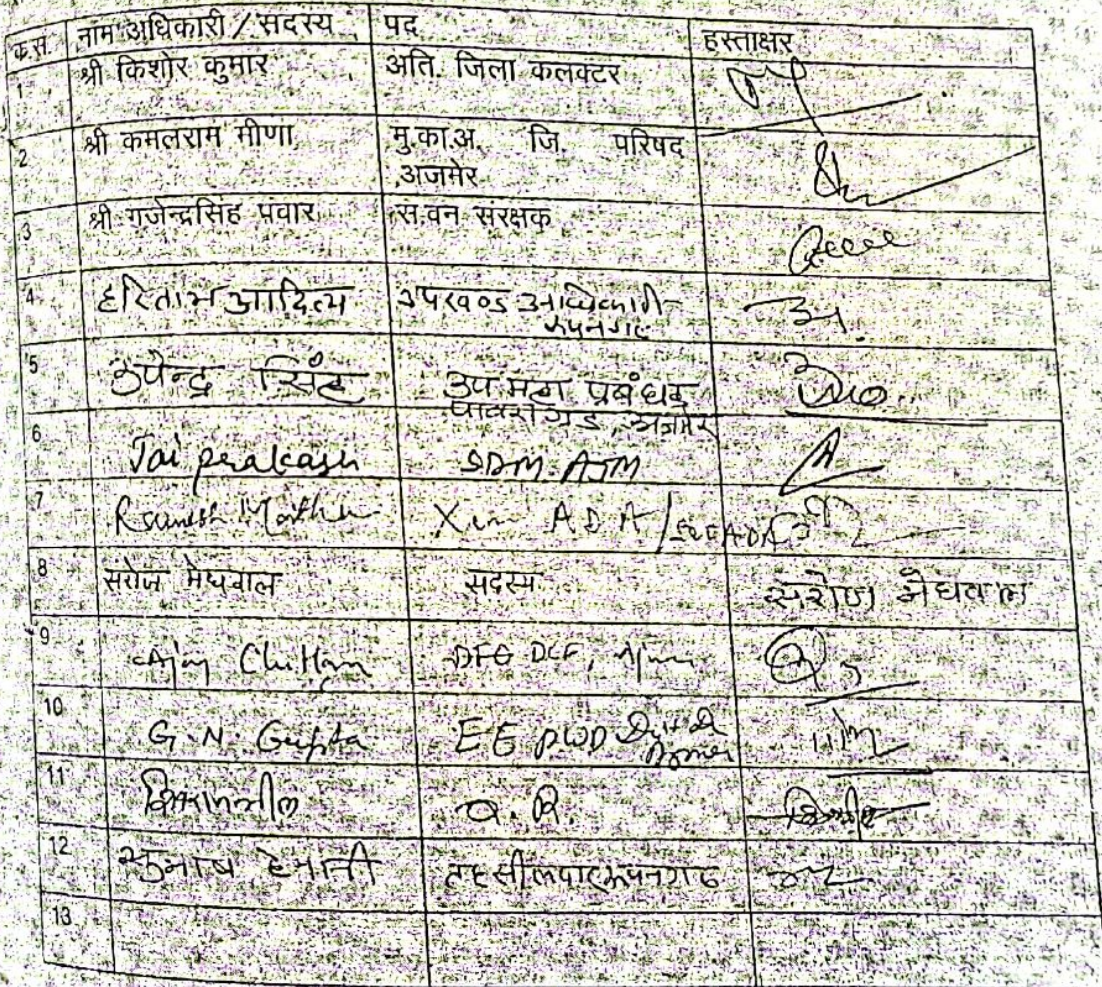 क्र.स. नाम अधिकारी / सदस्य पद हस्ताक्षर
1 श्री किशोर कुमार अति. जिला कलक्टर
2 श्री कमलराम मीणा मु.का.अ. जि. परिषद
,अजमेर
3 श्री गजेन्द्रसिंह पंवार स.वन संरक्षक
4 हरिताभ आदित्य उपखण्ड अधिकारी
रूपनगढ
5 उपेन्द्र सिंह उप महा प्रबंधक
पावरग्रिड, अजमेर
6 Jai prakash SDM-AJM
7 Ramesh Mathur Xen ADA /
8 सरोज मेघवाल सदस्य सरोज मेघवाल
9 Ajay DCF,
10 G.N. Gupta EE PWD
11
12 सुभाष तहसीलदार रूपनगढ
13